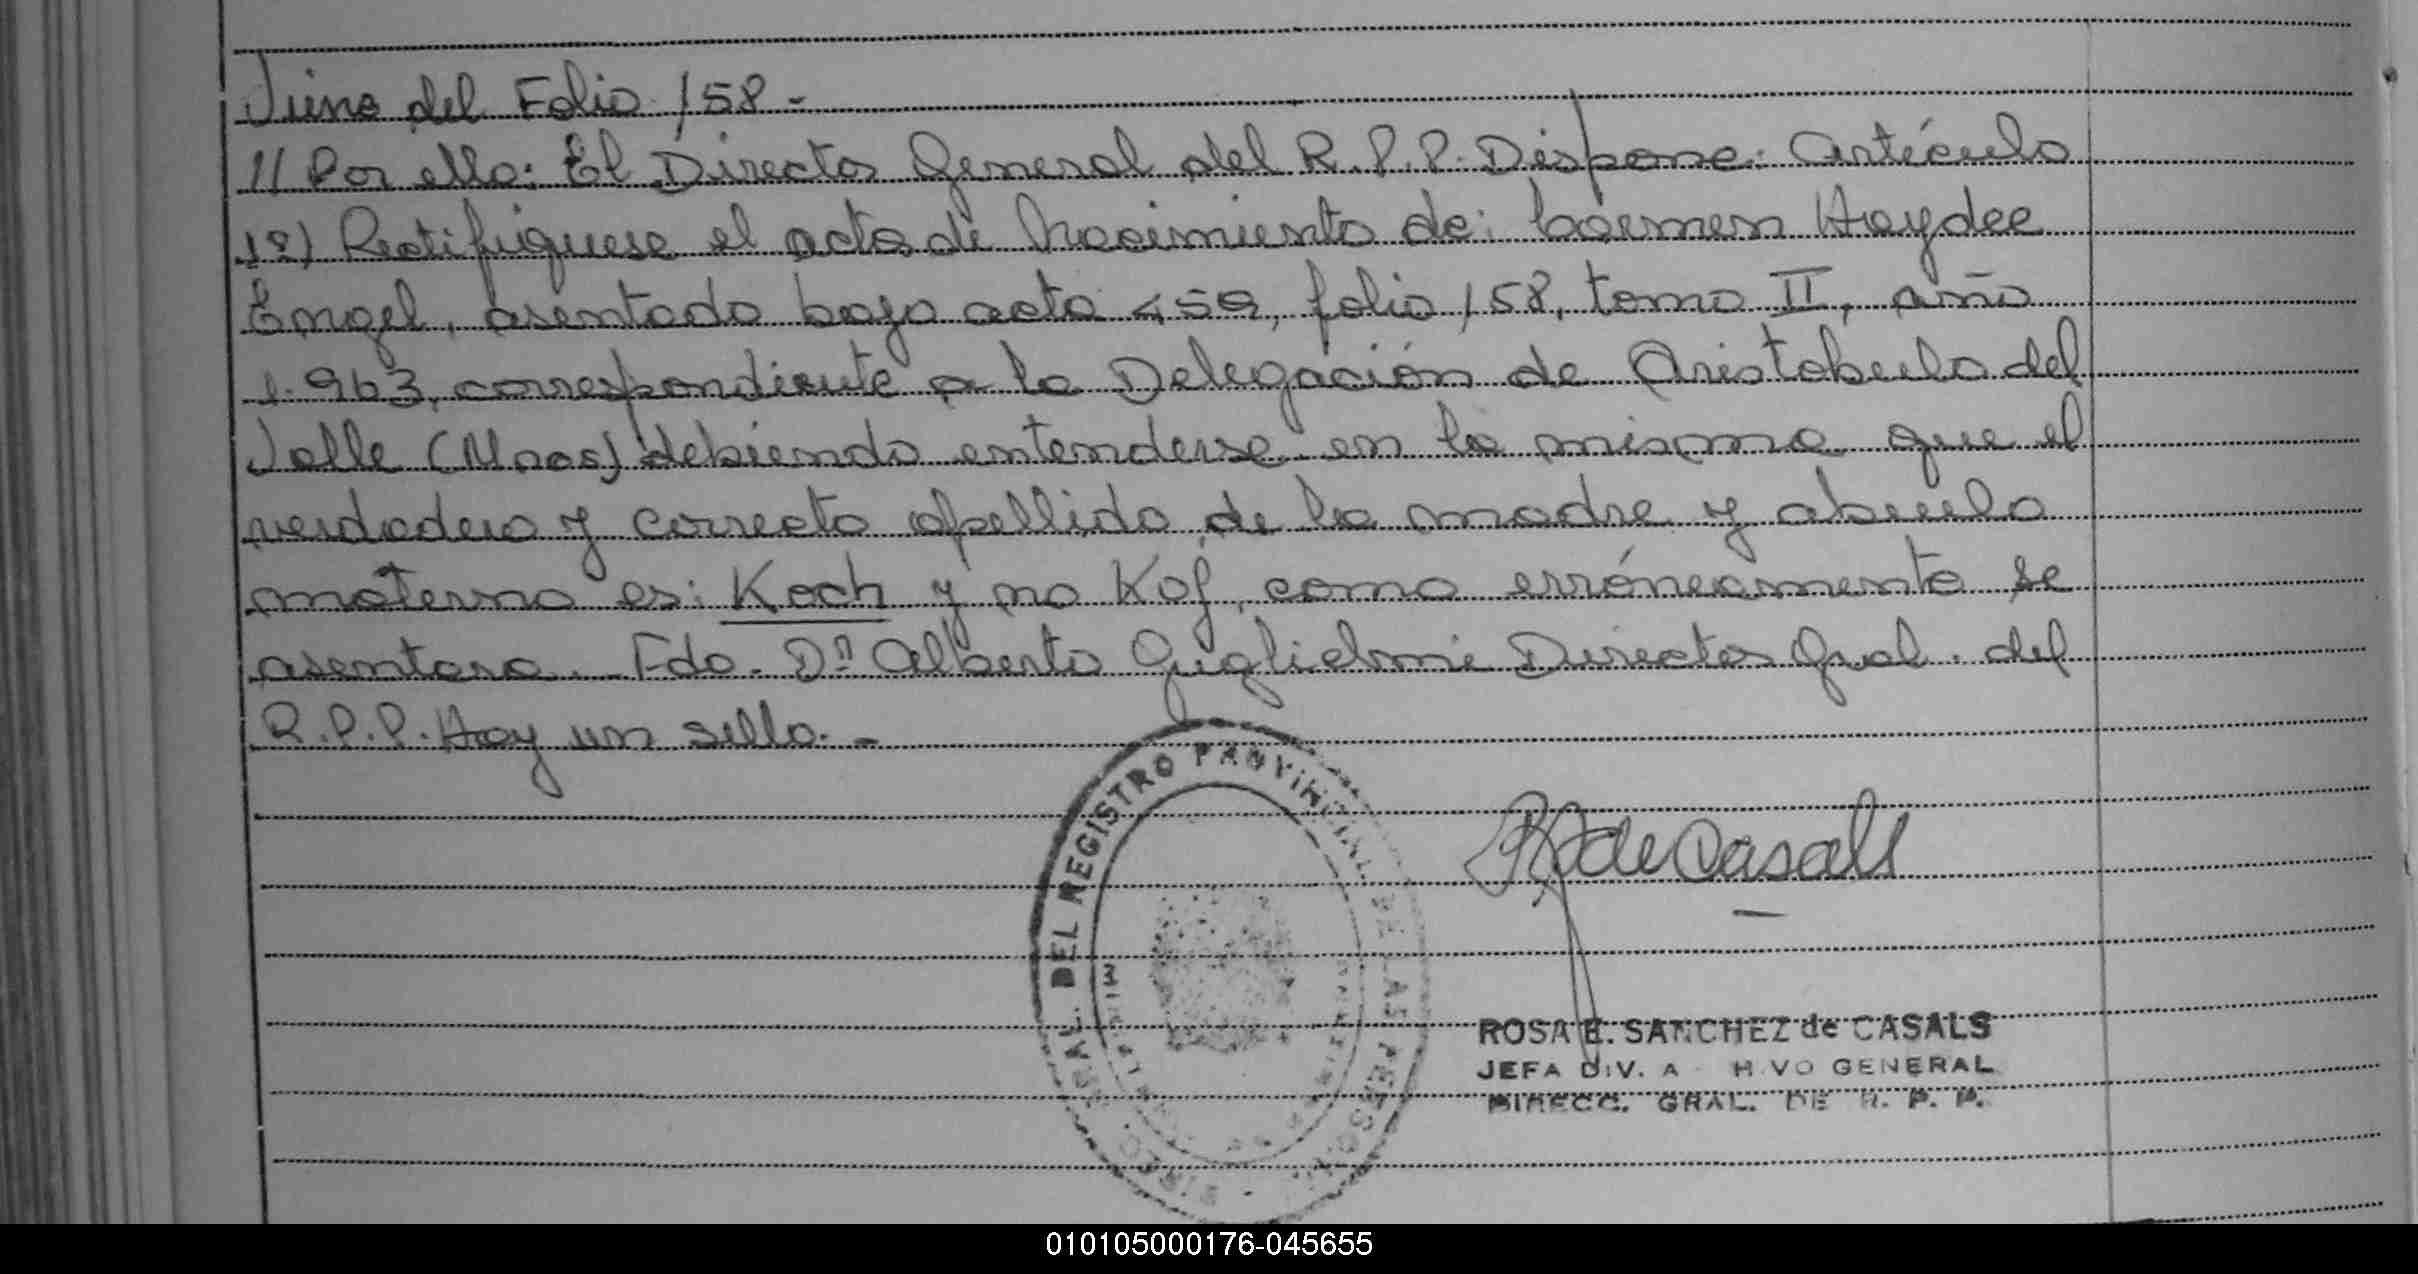 Viene del Folio 158.-
// Por ello: El Director General del R.P.P. Dispone: Artículo
1º) Rectifíquese el acta de Nacimiento de: Carmen Haydee
Engel, asentado bajo acta 459, folio 158, tomo II, año
1.963, correspondiente a la Delegación de Aristobulo del
Valle (Mnes) debiendo entenderse en la misma que el
verdadero y correcto apellido de la madre y abuelo
materno es: Koch y no Kof, como erróneamente se
asentara. Fdo. Dn Alberto Guglielmi Director Gral. del
R.P.P. Hay un sello.-
DEL REGISTRO PROVINCIAL DE LAS PERSONAS
R de Casals
ROSA E. SANCHEZ de CASALS
JEFA DIV. A H VO GENERAL
DIRECC. GRAL. DE R. P. P.
010105000176-045655